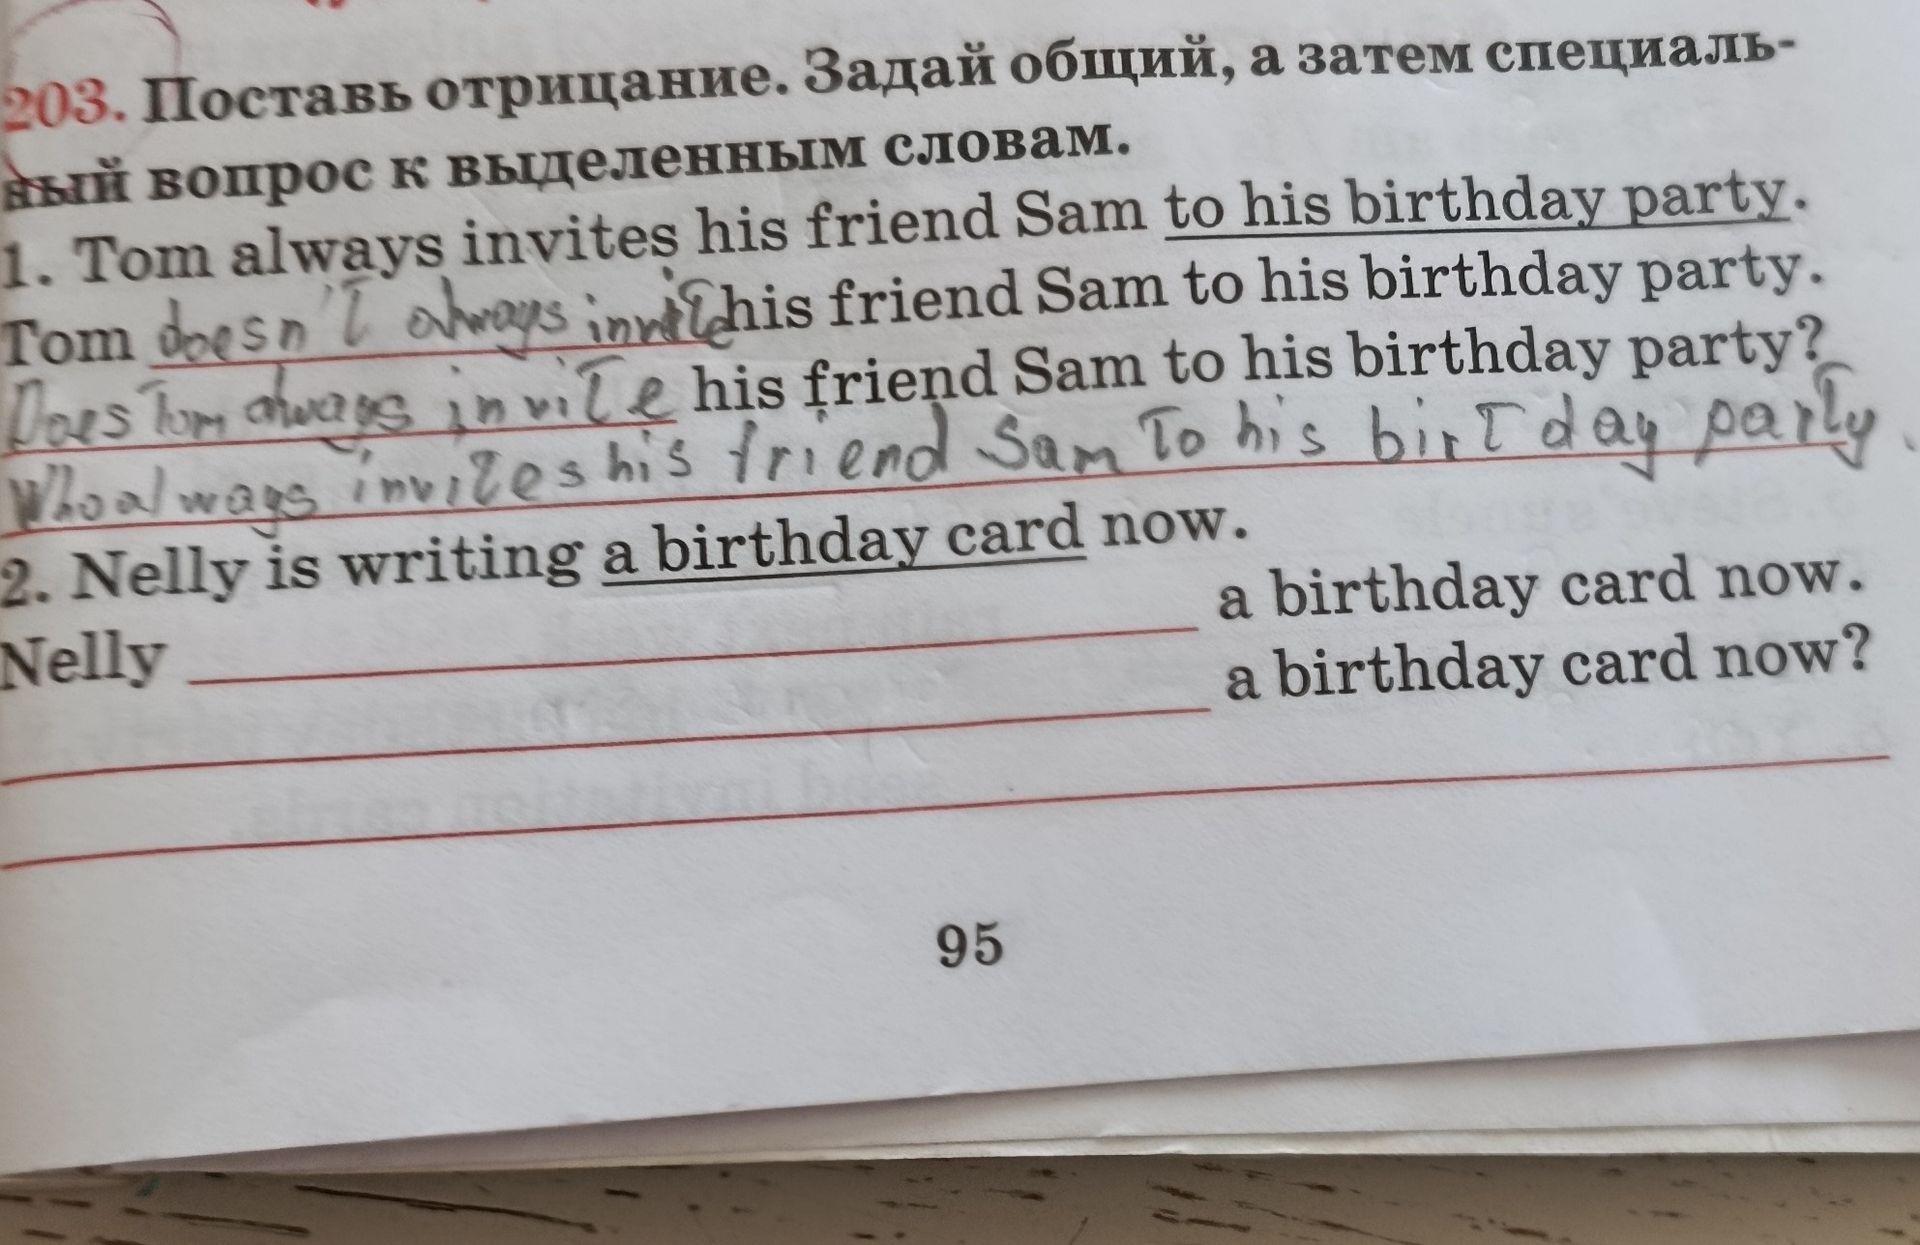 203. Поставь отрицание. Задай общий, а затем специаль-
ный вопрос к выделенным словам.
1. Tom always invites his friend Sam to his birthday party.
Tom doesn't always invite his friend Sam to his birthday party.
Does Tom always invite his friend Sam to his birthday party?
Who always invites his friend Sam to his birtday party.
2. Nelly is writing a birthday card now.
Nelly ______ a birthday card now.
______ a birthday card now?
95